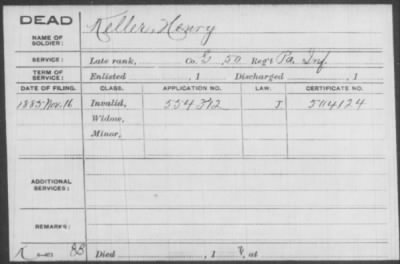 DEAD
NAME OF SOLDIER: Keller, Henry
SERVICE: Late rank, Co. G, 50 Reg't Pa. Inf.
TERM OF SERVICE: Enlisted , 1 Discharged , 1
DATE OF FILING. CLASS. APPLICATION NO. LAW. CERTIFICATE NO.
1885 Nov. 16 Invalid, 554372 J 504124
Widow,
Minor,
ADDITIONAL SERVICES:
REMARKS:
Died , 1 , at